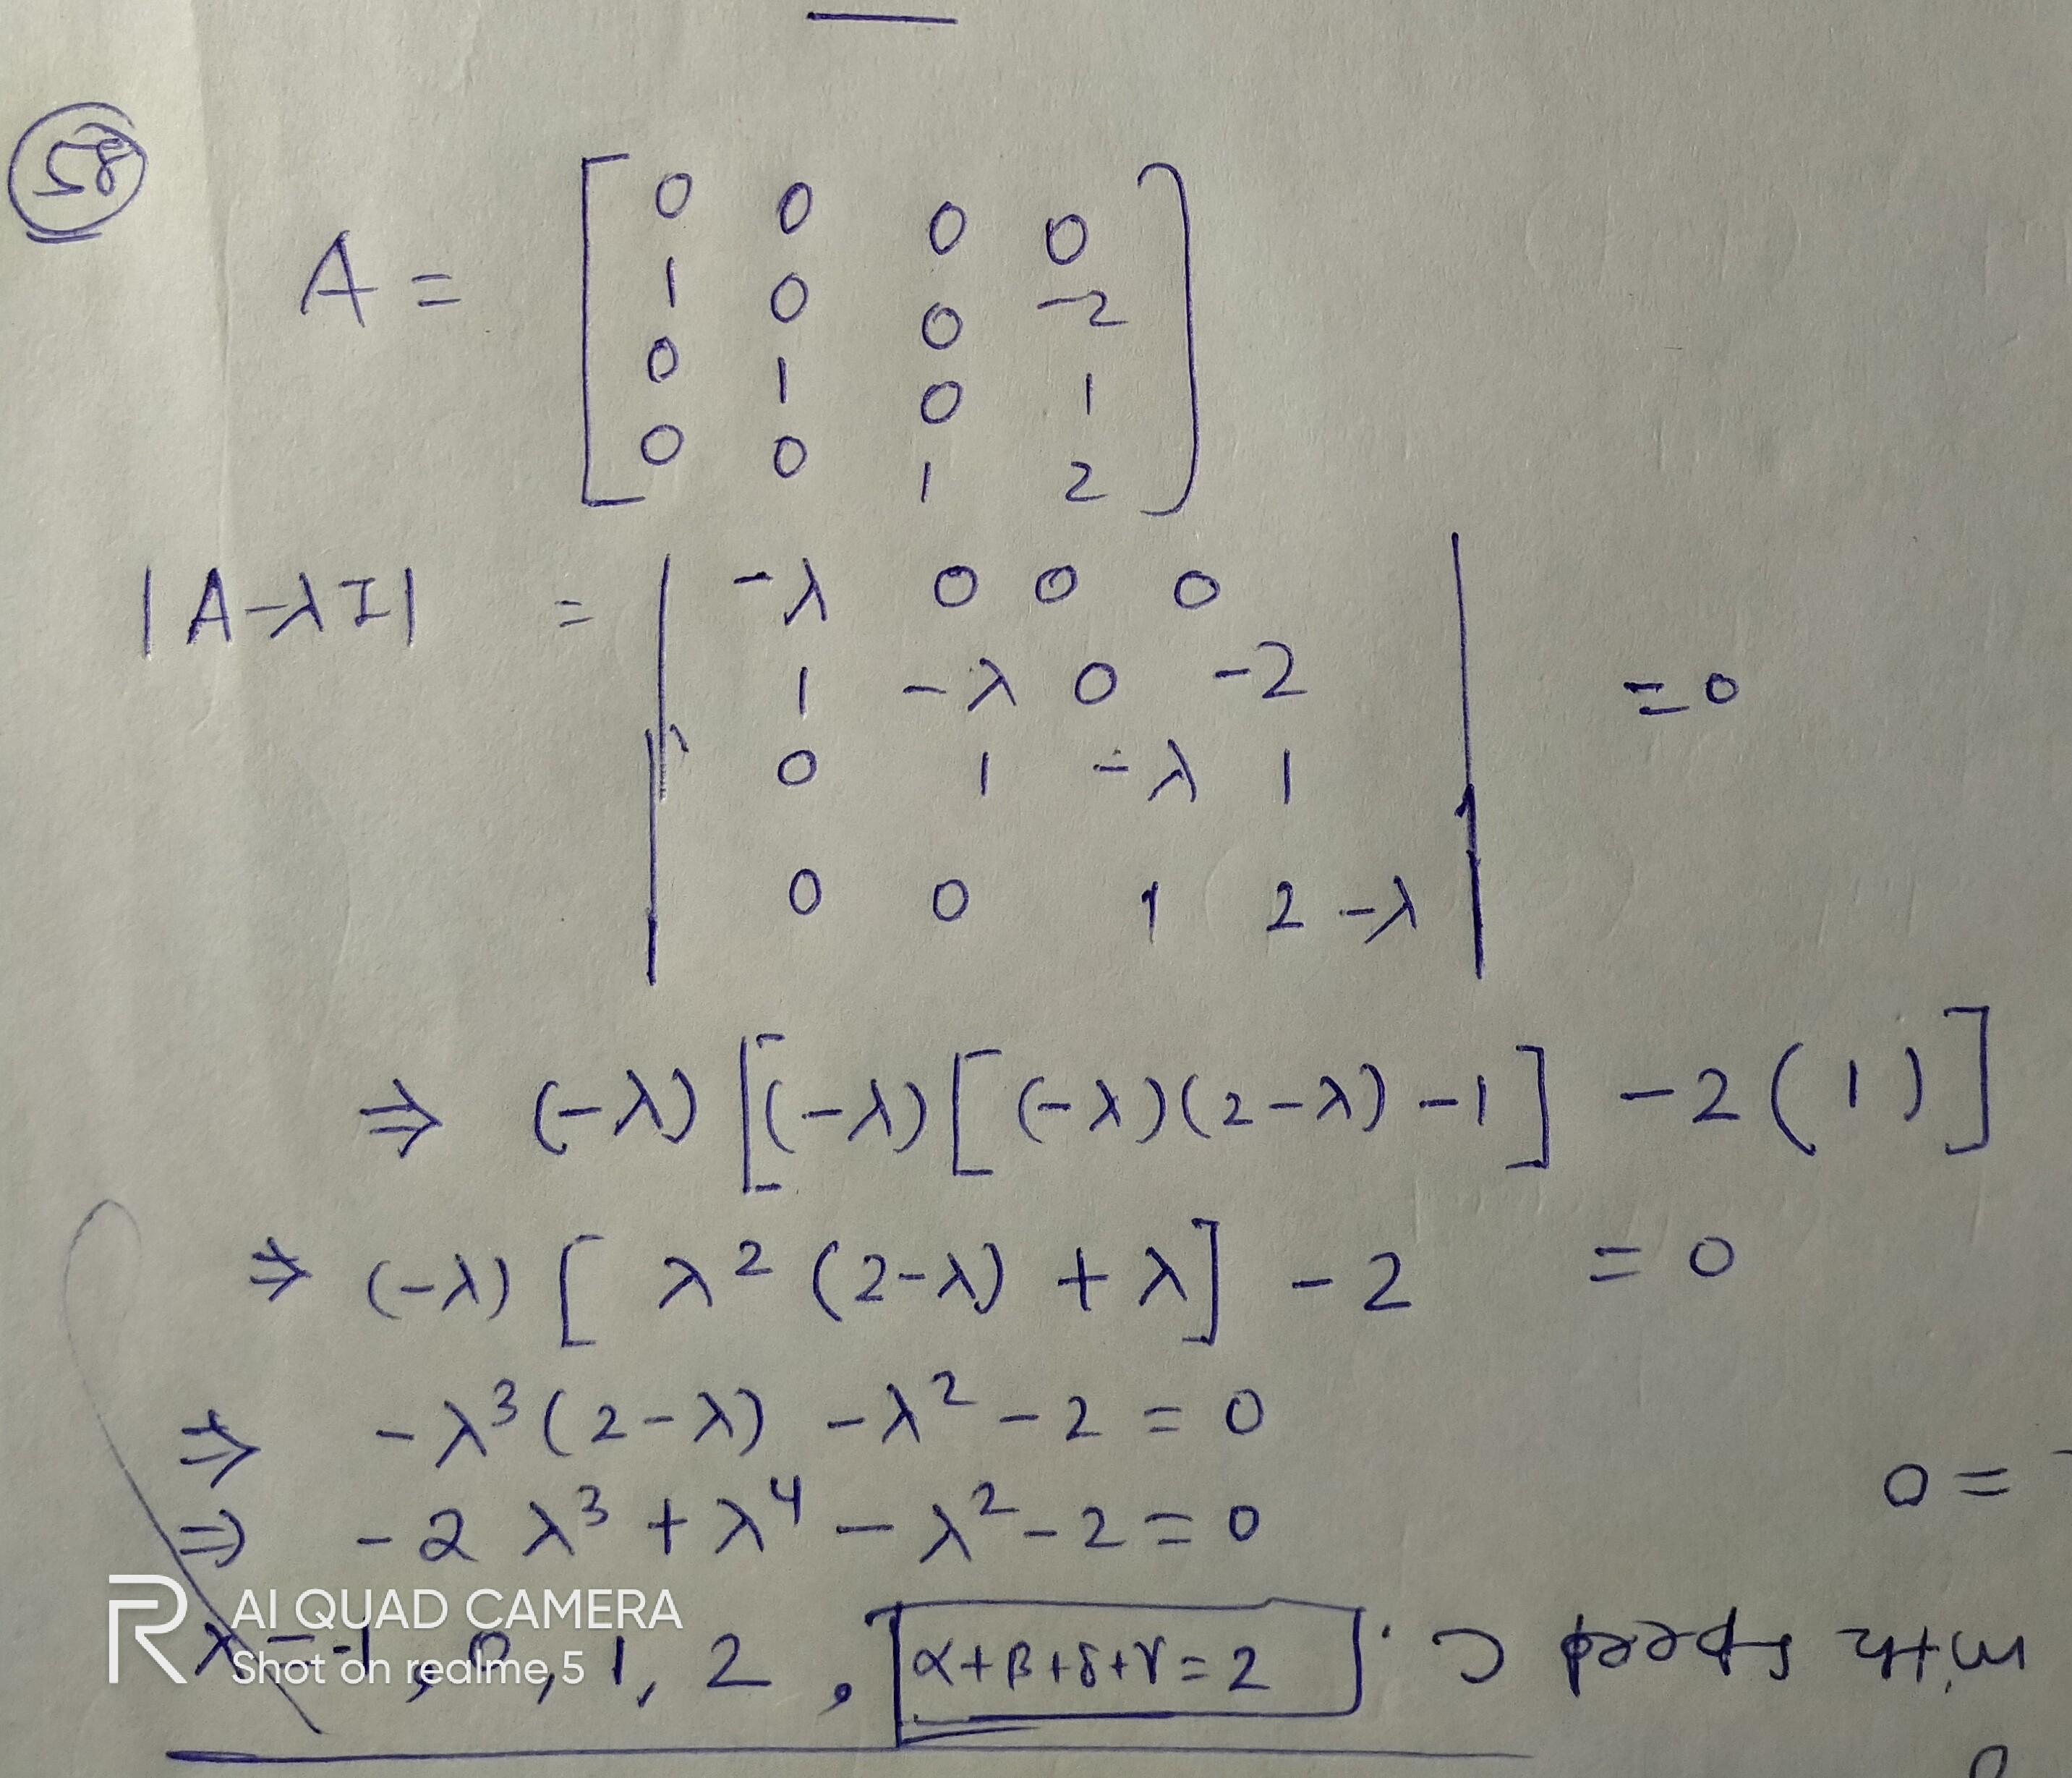 58
A = [ 0 0 0 0
1 0 0 -2
0 1 0 1
0 0 1 2 ]
|A-λI| = | -λ 0 0 0
1 -λ 0 -2 = 0
0 1 -λ 1
0 0 1 2-λ |
⇒ (-λ) [(-λ) [(-λ)(2-λ) -1] -2(1)]
⇒ (-λ) [ λ² (2-λ) + λ] - 2 = 0
⇒ -λ³ (2-λ) -λ² - 2 = 0
⇒ -2λ³ + λ⁴ - λ² - 2 = 0
λ = -1, 0, 1, 2, α+β+δ+γ = 2
AI QUAD CAMERA
Shot on realme 5
0 =
with speed C